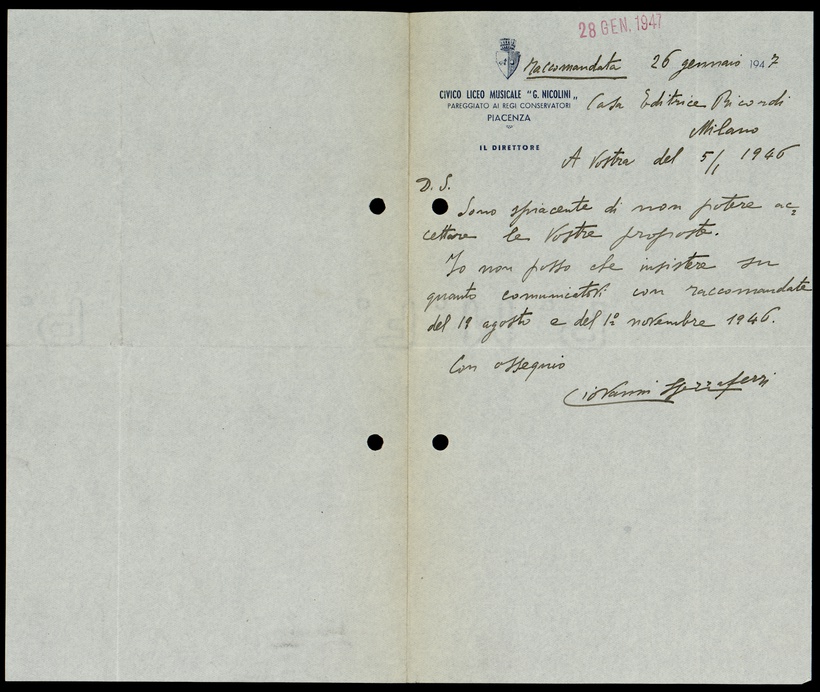 28 GEN. 1947
raccomandata 26 gennaio 1947
CIVICO LICEO MUSICALE "G. NICOLINI"
PAREGGIATO AI REGI CONSERVATORI
PIACENZA
IL DIRETTORE
Casa Editrice Ricordi
Milano
A Vostra del 5/1 1946
D. S.
Sono spiacente di non potere ac=
cettare le Vostre proposte.
Io non posso che insistere su
quanto comunicatoVi con raccomandate
del 19 agosto e del 1º novembre 1946.
Con ossequio
Giovanni Spezzaferri